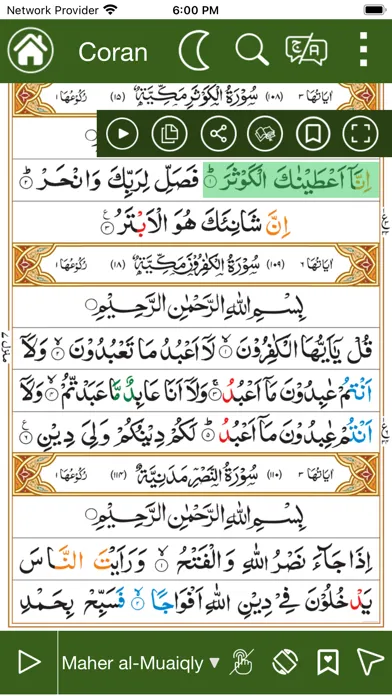 Network Provider 6:00 PM
Coran
اٰیَاتُهَا ٣ (١٠٨) سُوْرَةُ الْكَوْثَرِ مَكِّيَّةٌ (١٥) رُكُوْعُهَا ١
اِنَّاۤ اَعْطَیْنٰكَ الْكَوْثَرَ ۞١ فَصَلِّ لِرَبِّكَ وَانْحَرْ ۞٢
اِنَّ شَانِئَكَ هُوَ الْاَبْتَرُ ۞٣
اٰیَاتُهَا ٦ (١٠٩) سُوْرَةُ الْكٰفِرُوْنَ مَكِّيَّةٌ (١٨) رُكُوْعُهَا ١
بِسْمِ اللهِ الرَّحْمٰنِ الرَّحِیْمِ
قُلْ یٰۤاَیُّهَا الْكٰفِرُوْنَ ۞١ لَاۤ اَعْبُدُ مَا تَعْبُدُوْنَ ۞٢ وَلَاۤ
اَنْتُمْ عٰبِدُوْنَ مَاۤ اَعْبُدُ ۞٣ وَلَاۤ اَنَا عَابِدٌ مَّا عَبَدْتُّمْ ۞٤ وَلَاۤ
اَنْتُمْ عٰبِدُوْنَ مَاۤ اَعْبُدُ ۞٥ لَكُمْ دِیْنُكُمْ وَلِیَ دِیْنِ ۞٦
اٰیَاتُهَا ٣ (١١٠) سُوْرَةُ النَّصْرِ مَدَنِيَّةٌ (١١٤) رُكُوْعُهَا ١
بِسْمِ اللهِ الرَّحْمٰنِ الرَّحِیْمِ
اِذَا جَآءَ نَصْرُ اللهِ وَالْفَتْحُ ۞١ وَرَاَیْتَ النَّاسَ
یَدْخُلُوْنَ فِیْ دِیْنِ اللهِ اَفْوَاجًا ۞٢ فَسَبِّحْ بِحَمْدِ
Maher al-Muaiqly